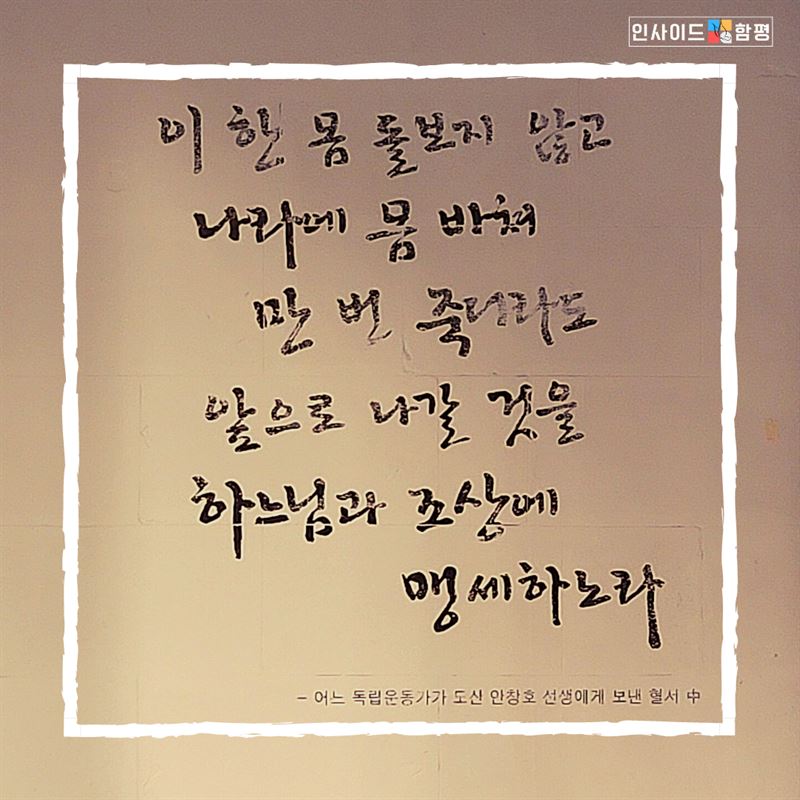 인사이드 함평
이 한 몸 돌보지 않고
나라에 몸 바쳐
만 번 죽더라도
앞으로 나갈 것을
하느님과 조상에
맹세하노라
- 어느 독립운동가가 도산 안창호 선생에게 보낸 혈서 中